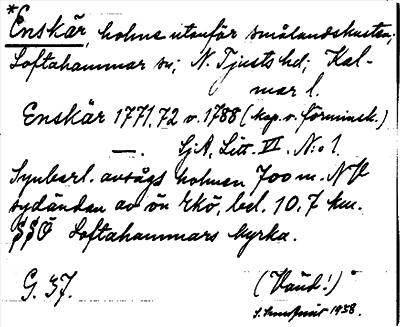 *Enskär, holme utanför smålandskusten;
Loftahammar sn; N. Tjusts hd; Kal-
mar l.
Enskär 1771.72 v. 1788 (kop. v. förminsk.)
—. SjA, Litt. VI. N:o 1.
Synbarl. avsågs holmen 700 m. NV
sydändan av ön Rkö, bel. 10,7 km.
SSO Loftahammars kyrka.
G. 37. (Vänd!)
S. 1938.